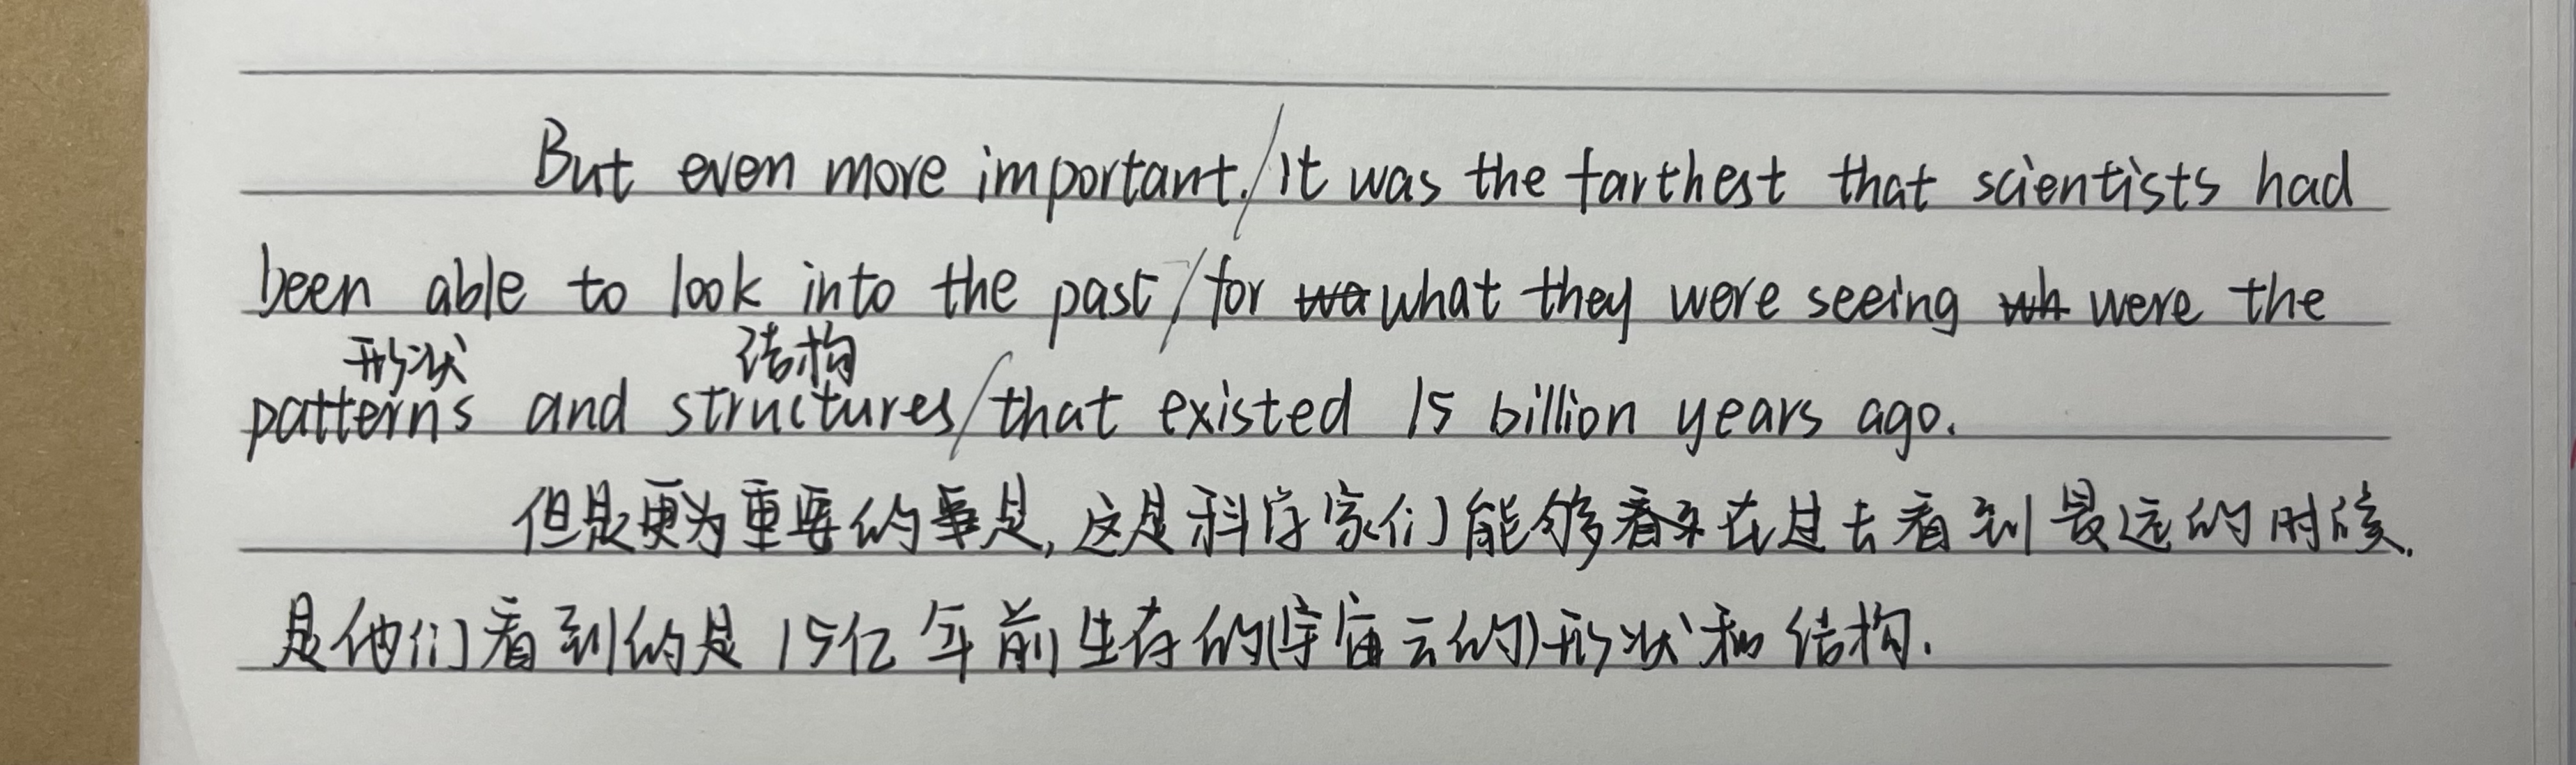 But even more important, / it was the farthest that scientists had
been able to look into the past / for what they were seeing were the
形状 结构
patterns and structures / that existed 15 billion years ago.
但是更为重要的事是, 这是科学家们能够在过去看到最远的时候.
是他们看到的是 15亿年前生存的(宇宙云的)形状和结构.